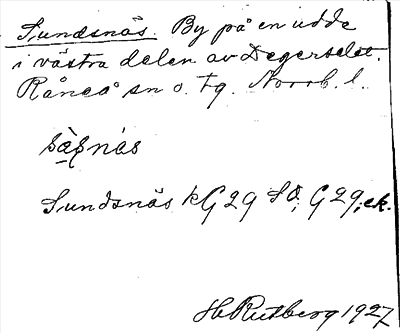 Sundsnäs. By på en udde
i västra delen av Degerselet.
Råneå sn o. tg. Norrb. l.
Sundsnäs kG29 SO; G29; ek.
H. Rutberg 1927